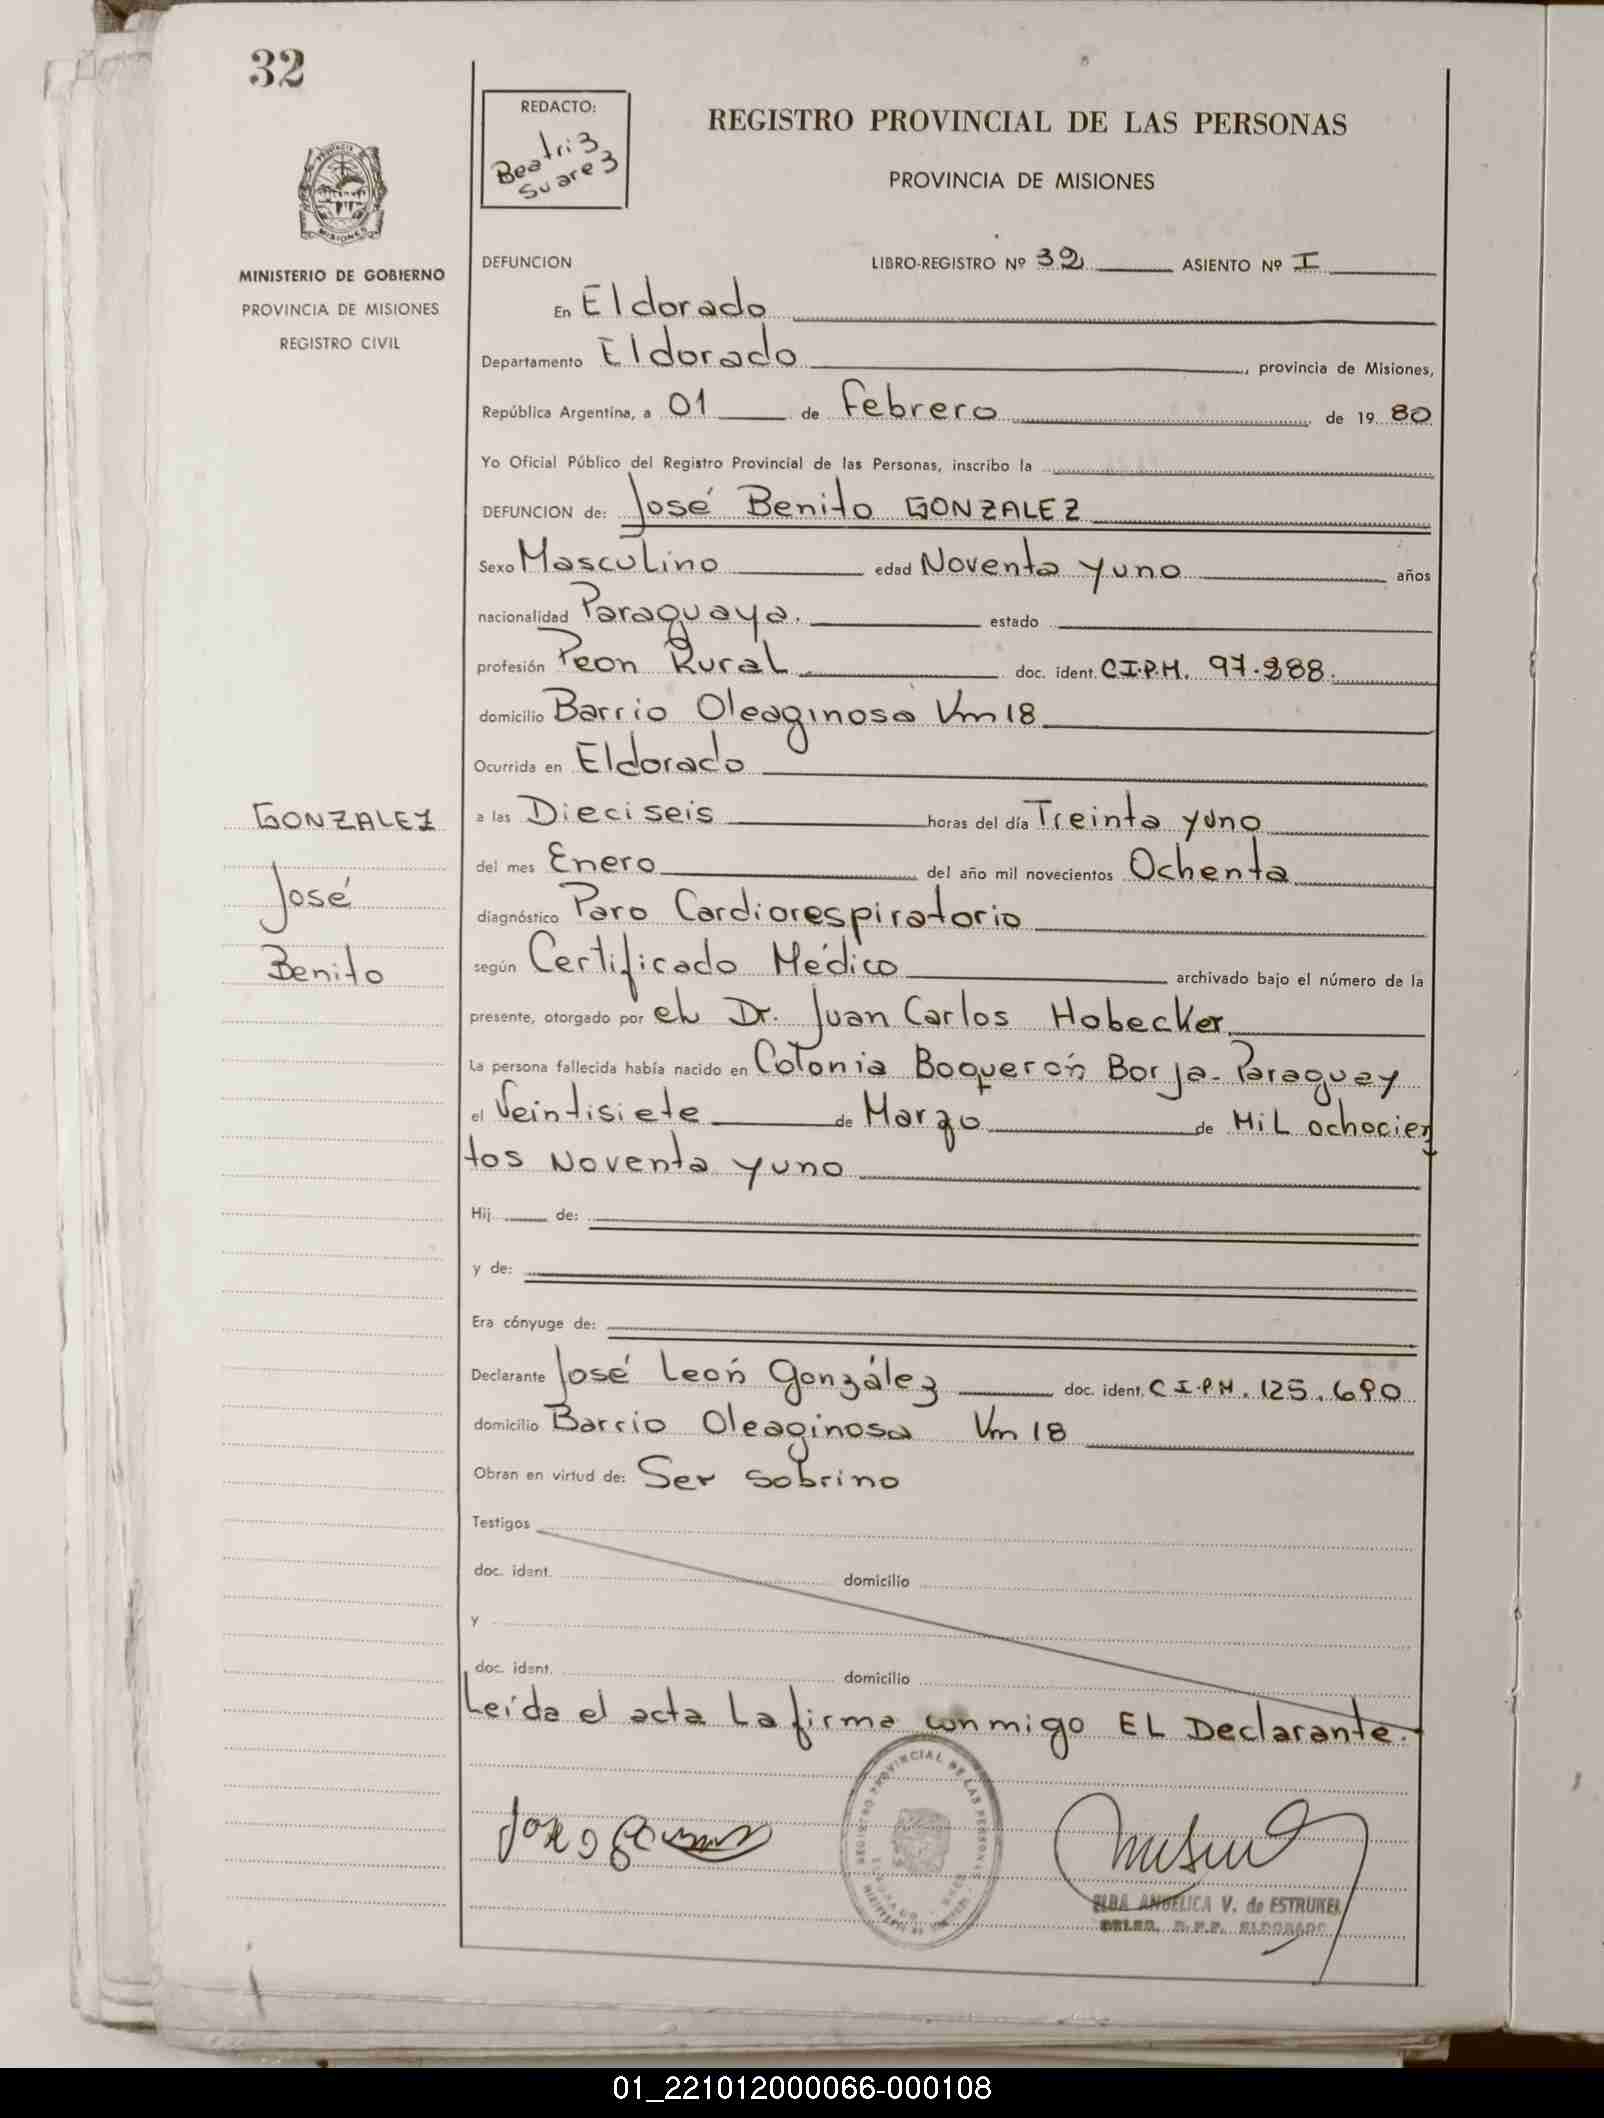 32
REDACTO:
Beatriz
Suarez
REGISTRO PROVINCIAL DE LAS PERSONAS
PROVINCIA DE MISIONES
MISIONES
MINISTERIO DE GOBIERNO
PROVINCIA DE MISIONES
REGISTRO CIVIL
DEFUNCION LIBRO-REGISTRO Nº 32 ASIENTO Nº I
En Eldorado
Departamento Eldorado, provincia de Misiones,
República Argentina, a 01 de Febrero de 19 80
Yo Oficial Público del Registro Provincial de las Personas, inscribo la
DEFUNCION de: José Benito GONZALEZ
Sexo Masculino edad Noventa y uno años
nacionalidad Paraguaya. estado
profesión Peon Rural doc. ident. C.I.P.M. 97.288.
domicilio Barrio Oleaginosa Km 18
Ocurrida en Eldorado
a las Dieciseis horas del día Treinta y uno
del mes Enero del año mil novecientos Ochenta
diagnóstico Paro Cardiorespiratorio
según Certificado Médico archivado bajo el número de la
presente, otorgado por el Dr. Juan Carlos Hobecker
La persona fallecida había nacido en Colonia Boquerón Borja-Paraguay
el Veintisiete de Marzo de Mil ochocien
tos Noventa y uno
Hij de:
y de:
Era cónyuge de:
Declarante José León González doc. ident. C.I.P.M. 125.690
domicilio Barrio Oleaginosa Km 18
Obran en virtud de: Ser sobrino
Testigos
doc. ident. domicilio
y
doc. ident. domicilio
Leída el acta La firma conmigo EL Declarante.
GONZALEZ
José
Benito
REGISTRO PROVINCIAL DE LAS PERSONAS
ELBA ANGELICA V. de ESTRUKEL
DELEG. R.P.P. ELDORADO
01_221012000066-000108